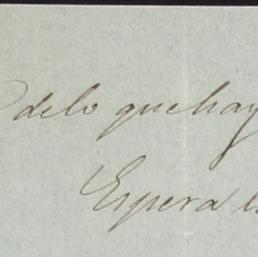 delo que hay
Espera